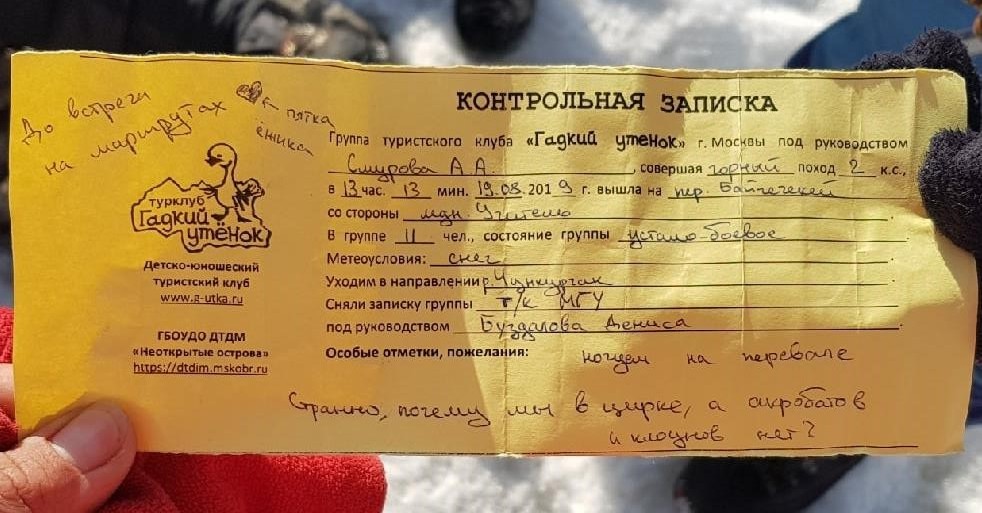 До встречи
на маршрутах
← пятка
ёжика
турклуб
Гадкий
утёнок
Детско-юношеский
туристский клуб
www.g-utka.ru
ГБОУДО ДТДМ
«Неоткрытые острова»
https://dtdim.mskobr.ru
КОНТРОЛЬНАЯ ЗАПИСКА
Группа туристского клуба «Гадкий утёнок» г. Москвы под руководством
Смурова А.А. , совершая горный поход 2 к.с.,
в 13 час. 13 мин. 19.08.2019 г. вышла на пер. Байчечекей
со стороны лдн. Учителю .
В группе 11 чел., состояние группы устало-боевое .
Метеоусловия: снег .
Уходим в направлении р. Чункурчак .
Сняли записку группы т/к МГУ
под руководством Буздалова Дениса .
Особые отметки, пожелания: ночуем на перевале
Странно, почему мы в цирке, а акробатов
и клоунов нет?